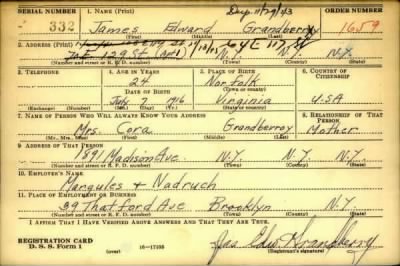 Dup. 11/29/43
SERIAL NUMBER 1. NAME (Print) ORDER NUMBER
332 James Edward Grandberry 1659
(First) (Middle) (Last)
2. ADDRESS (Print)
64 E 117
E 129 St. N.Y. N.Y. N.Y.
(Number and street or R. F. D. number) (Town) (County) (State)
3. TELEPHONE 4. AGE IN YEARS 5. PLACE OF BIRTH 6. COUNTRY OF CITIZENSHIP
24 Norfolk
(Town or county)
DATE OF BIRTH
July 7 1916 Virginia USA
(Exchange) (Number) (Mo.) (Day) (Yr.) (State or country)
7. NAME OF PERSON WHO WILL ALWAYS KNOW YOUR ADDRESS 8. RELATIONSHIP OF THAT PERSON
Mrs. Cora Grandberry Mother
(Mr., Mrs., Miss) (First) (Middle) (Last)
9. ADDRESS OF THAT PERSON
1891 Madison Ave. N.Y. N.Y. N.Y.
(Number and street or R. F. D. number) (Town) (County) (State)
10. EMPLOYER'S NAME
Margules & Nadruch
11. PLACE OF EMPLOYMENT OR BUSINESS
39 Thatford Ave Brooklyn N.Y.
(Number and street or R. F. D. number) (Town) (County) (State)
I AFFIRM THAT I HAVE VERIFIED ABOVE ANSWERS AND THAT THEY ARE TRUE.
REGISTRATION CARD
D. S. S. Form 1 16—17105 Jas. Edw. Grandberry
(Registrant's signature)